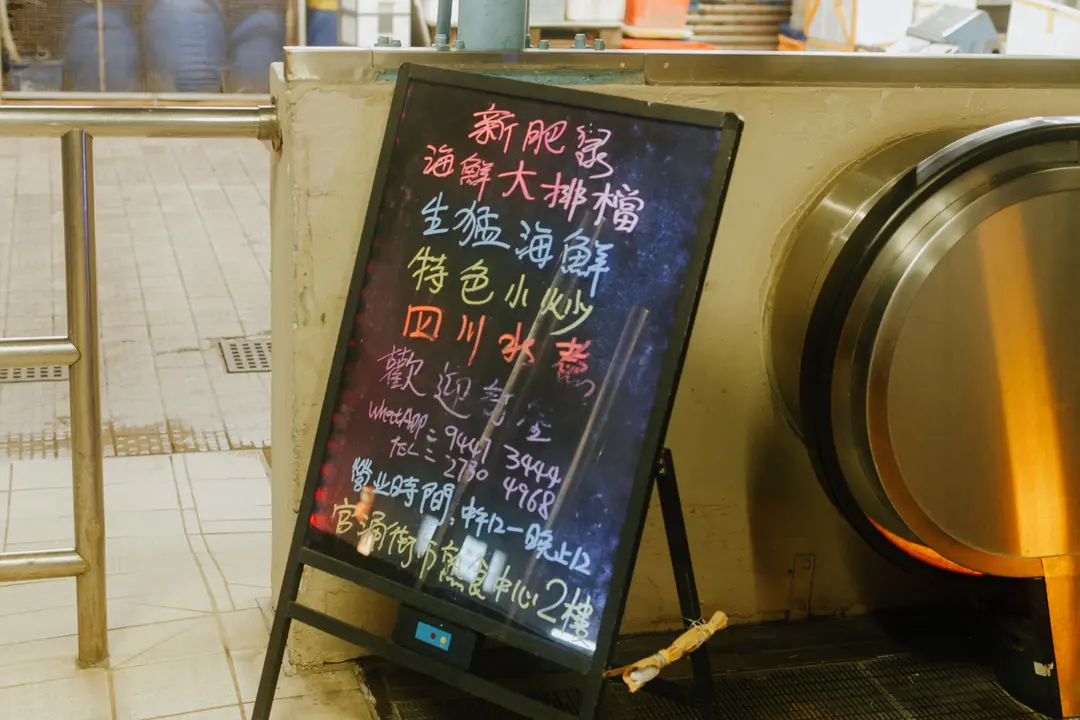 新肥彩
海鮮大排檔
生猛海鮮
特色小炒
四川水煮
歡迎訂座
WhatAPP: 9447 3444
TEL: 2730 4968
營業時間:中午12一晚上12
官涌街市熟食中心2樓